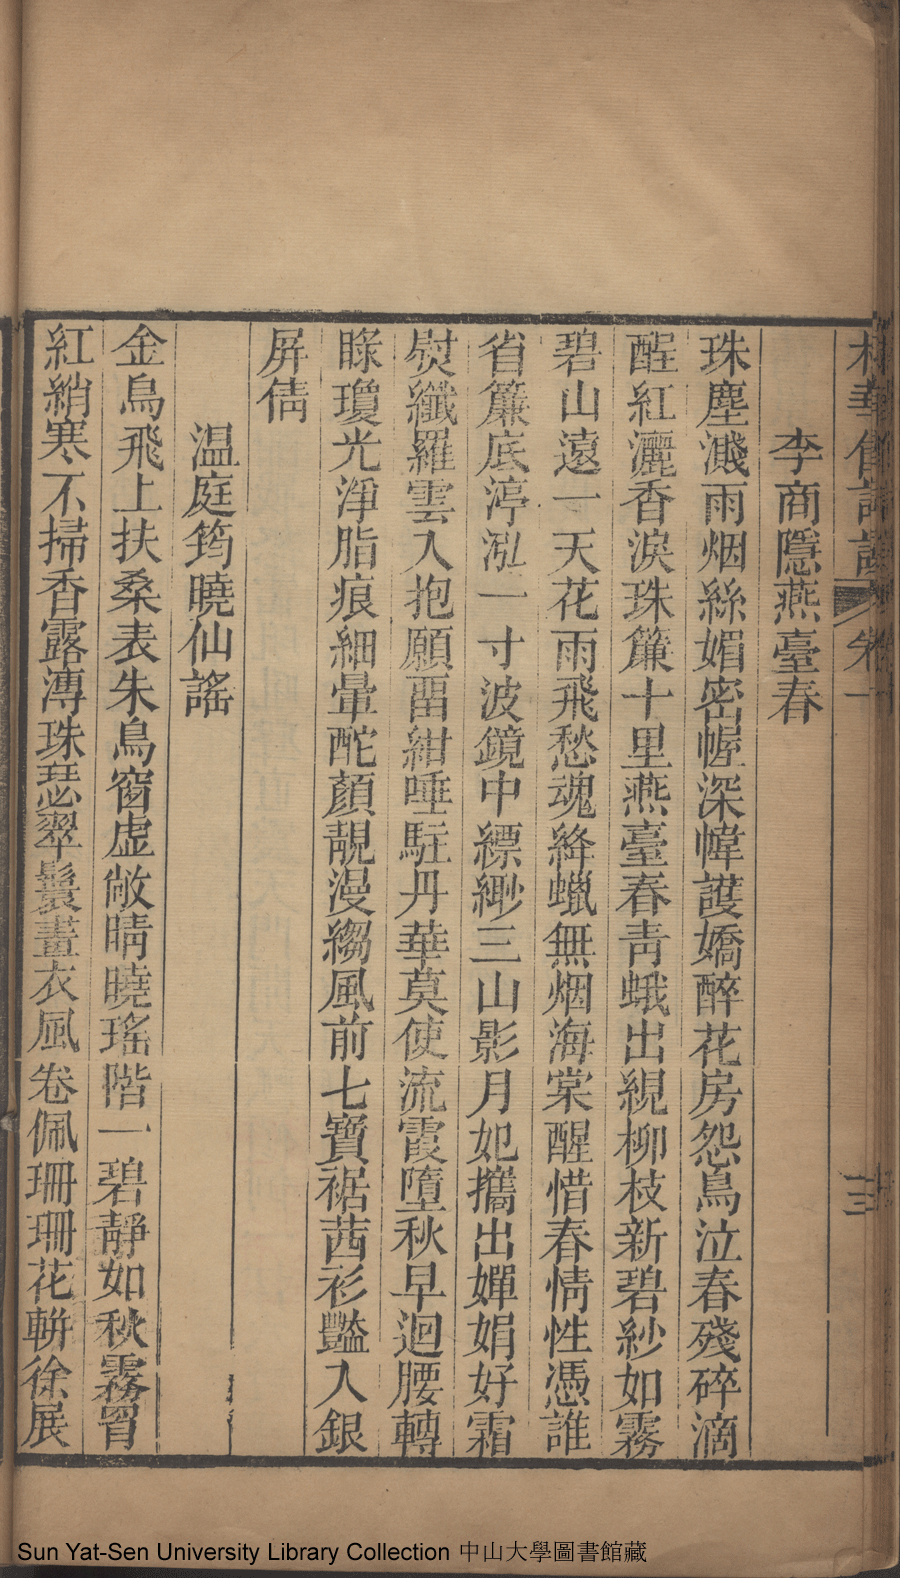 李商隱燕臺春
珠塵濺雨烟絲媚密幄深幃護嬌醉花房怨鳥泣春殘碎滴
醒紅灑香淚珠簾十里燕臺春青蛾出綄柳枝新碧紗如霧
碧山遠一天花雨飛愁魂絳蠟無烟海棠醒惜春情性憑誰
省簾底渟泓一寸波鏡中縹緲三山影月妃攜出嬋娟好霜
熨纖羅雲入抱願畱紺唾駐丹華莫使流霞墮秋早迴腰轉
睩瓊光淨脂痕細暈酡顏靚漫縐風前七寶裾茜衫豔入銀
屏倩
温庭筠曉仙謠
金烏飛上扶桑表朱鳥窗虛敞晴曉瑤階一碧靜如秋霧罥
紅綃寒不掃香露溥珠瑟翠鬟畫衣風卷佩珊珊花軿徐展
卷一
三
Sun Yat-Sen University Library Collection 中山大學圖書館藏